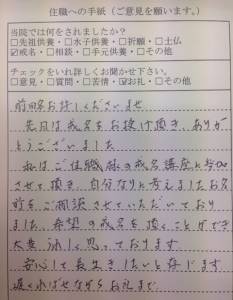 住職への手紙(ご意見を願います。)
当院では何をされましたか?
□先祖供養・□水子供養・□祈願・□土仏
☑戒名・□相談・□手元供養・□その他
チェックをいれ詳しくお聞かせ下さい。
□意見・□質問・□苦情・☑お礼・□その他
前略お許しくださいませ
先日は戒名をお授け頂き、ありが
とうございました
私はご住職様の戒名講座を
させて頂き、自分なりに考えましたお名
前をご相談させていただいており
ました 希望の戒名を頂くことができ
大変うれしく思っております
安心して長生きしたいと存じます
遅ればせながらお礼まで